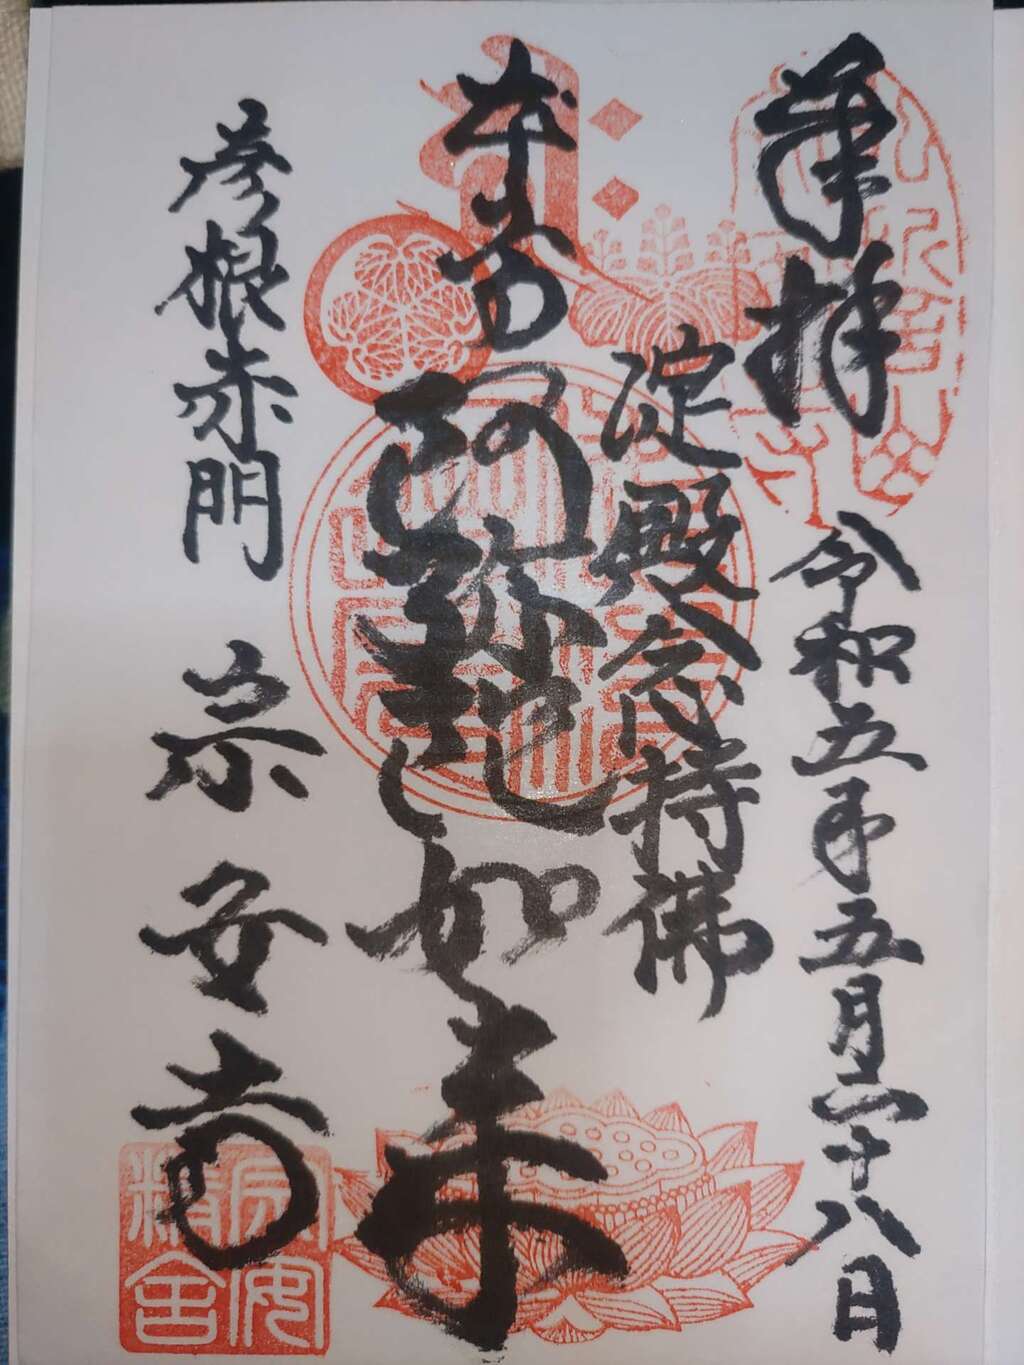 奉拝 令和五年五月二十八日
淀殿念持佛
本尊 阿弥陀如来
彦根赤門 宗安寺
宗安
精舎